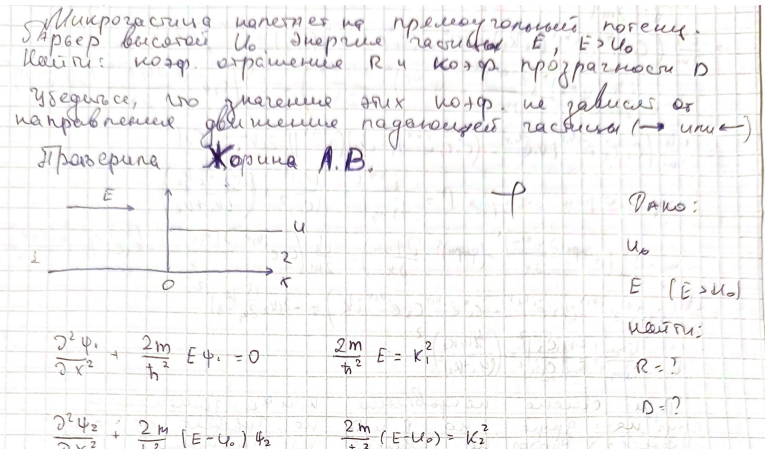 Микрочастица налетает на прямоугольный потенц.
барьер высотой U₀. Энергия частицы E, E>U₀
Найти: коэф. отражения R и коэф прозрачности D
Убедиться, что значения этих коэф. не зависят от
направления движения падающей частицы (→ или ←)
Проверила Жорина А.В.
E
U
1
2
0
x
Дано:
U₀
E (E>U₀)
Найти:
R=?
D=?
∂²ψ₁/∂x² + 2m/ħ² Eψ₁ = 0    2m/ħ² E = K₁²
∂²ψ₂/∂x² + 2m/ħ² (E-U₀)ψ₂    2m/ħ² (E-U₀) = K₂²